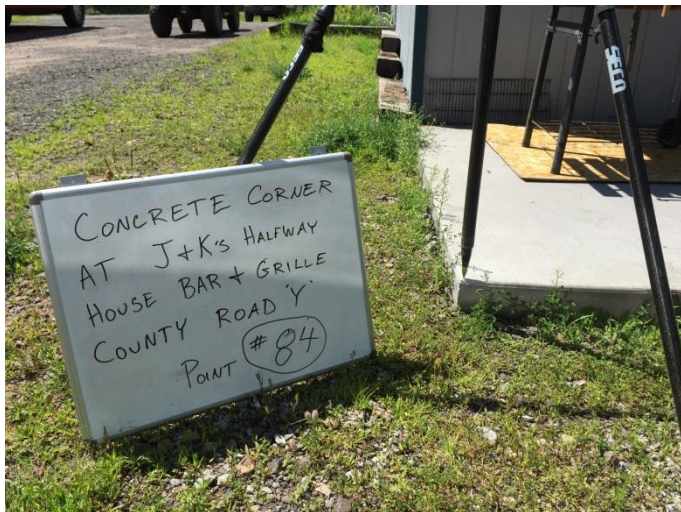 SECO
SECO
CONCRETE CORNER
AT J+K's HALFWAY
HOUSE BAR + GRILLE
COUNTY ROAD 'Y'
POINT #84